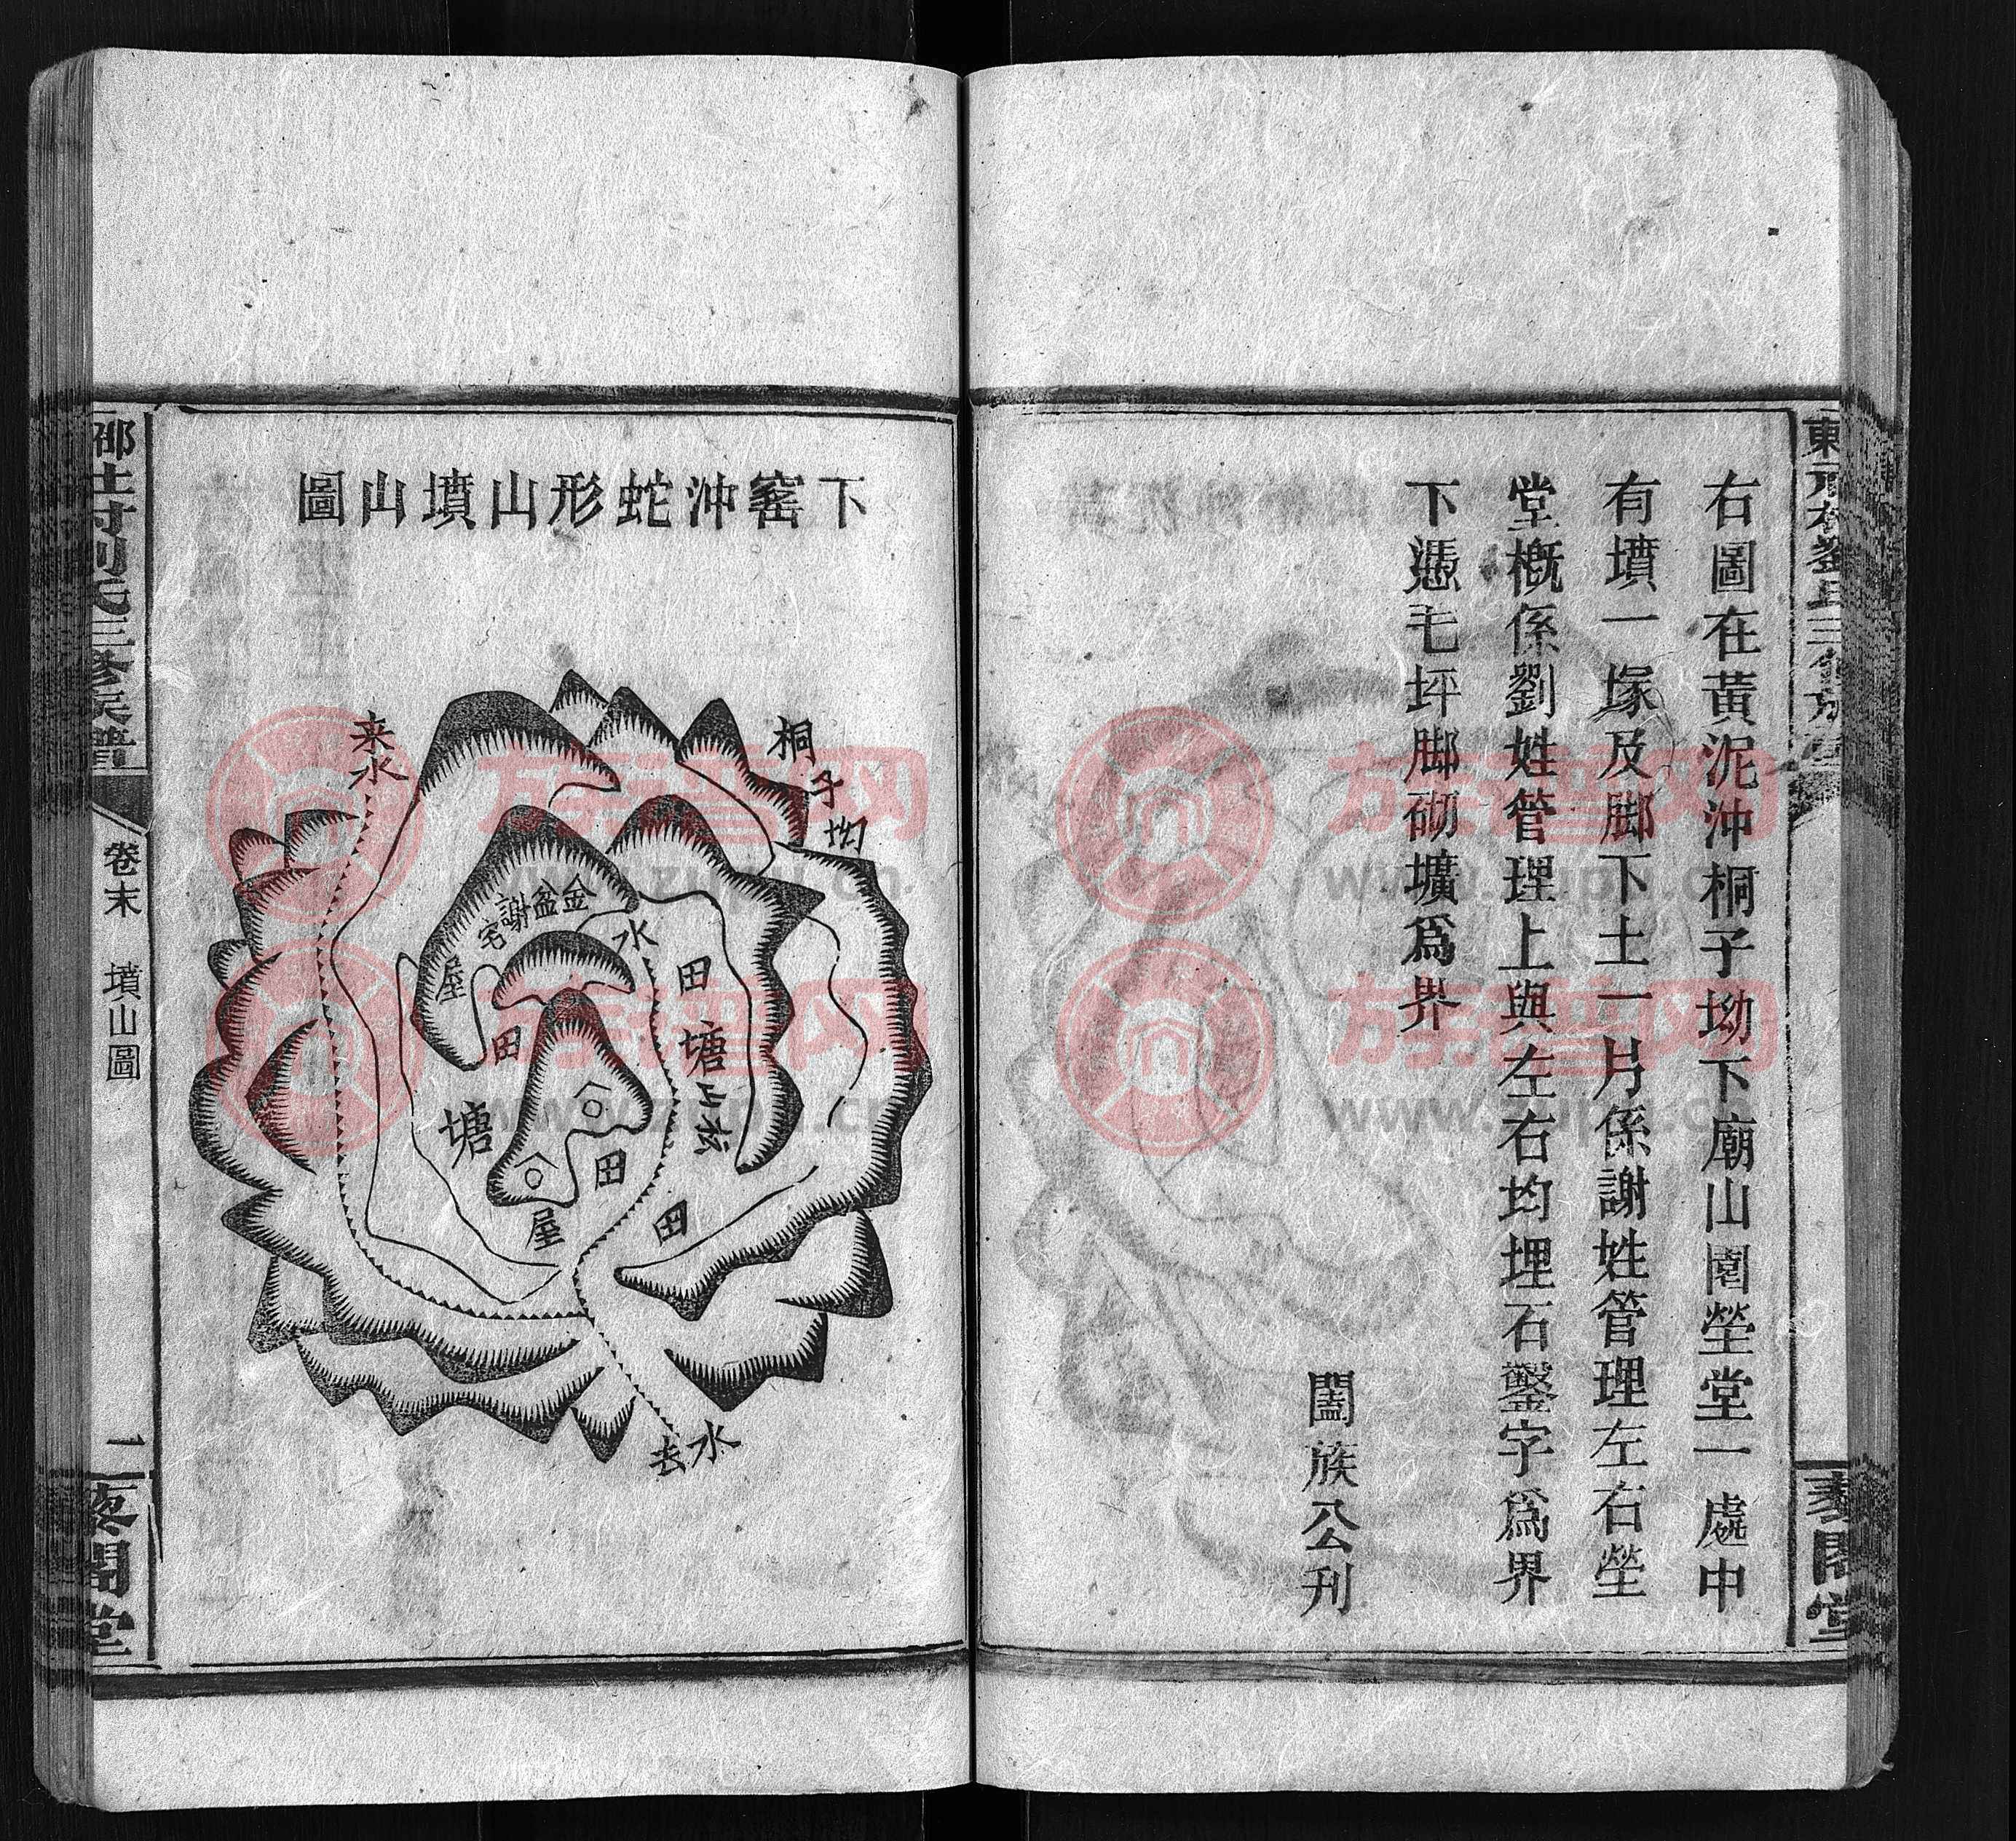 右圖在黃泥沖桐子坳下廟山園塋堂一處中
有墳一塚及脚下土一片係謝姓管理左右塋
堂概係劉姓管理上與左右均埋石鑿字爲界
下憑毛坪脚砌壙爲界
闔族公刊
下窰沖蛇形山墳山圖
桐子坳
来水
金盆謝宅
屋
水
田
塘
田
塘
田
屋
田
水去
卷末
墳山圖
族譜网
www.zupu.cn
族譜网
www.zupu.cn
族譜网
www.zupu.cn
族譜网
www.zupu.cn